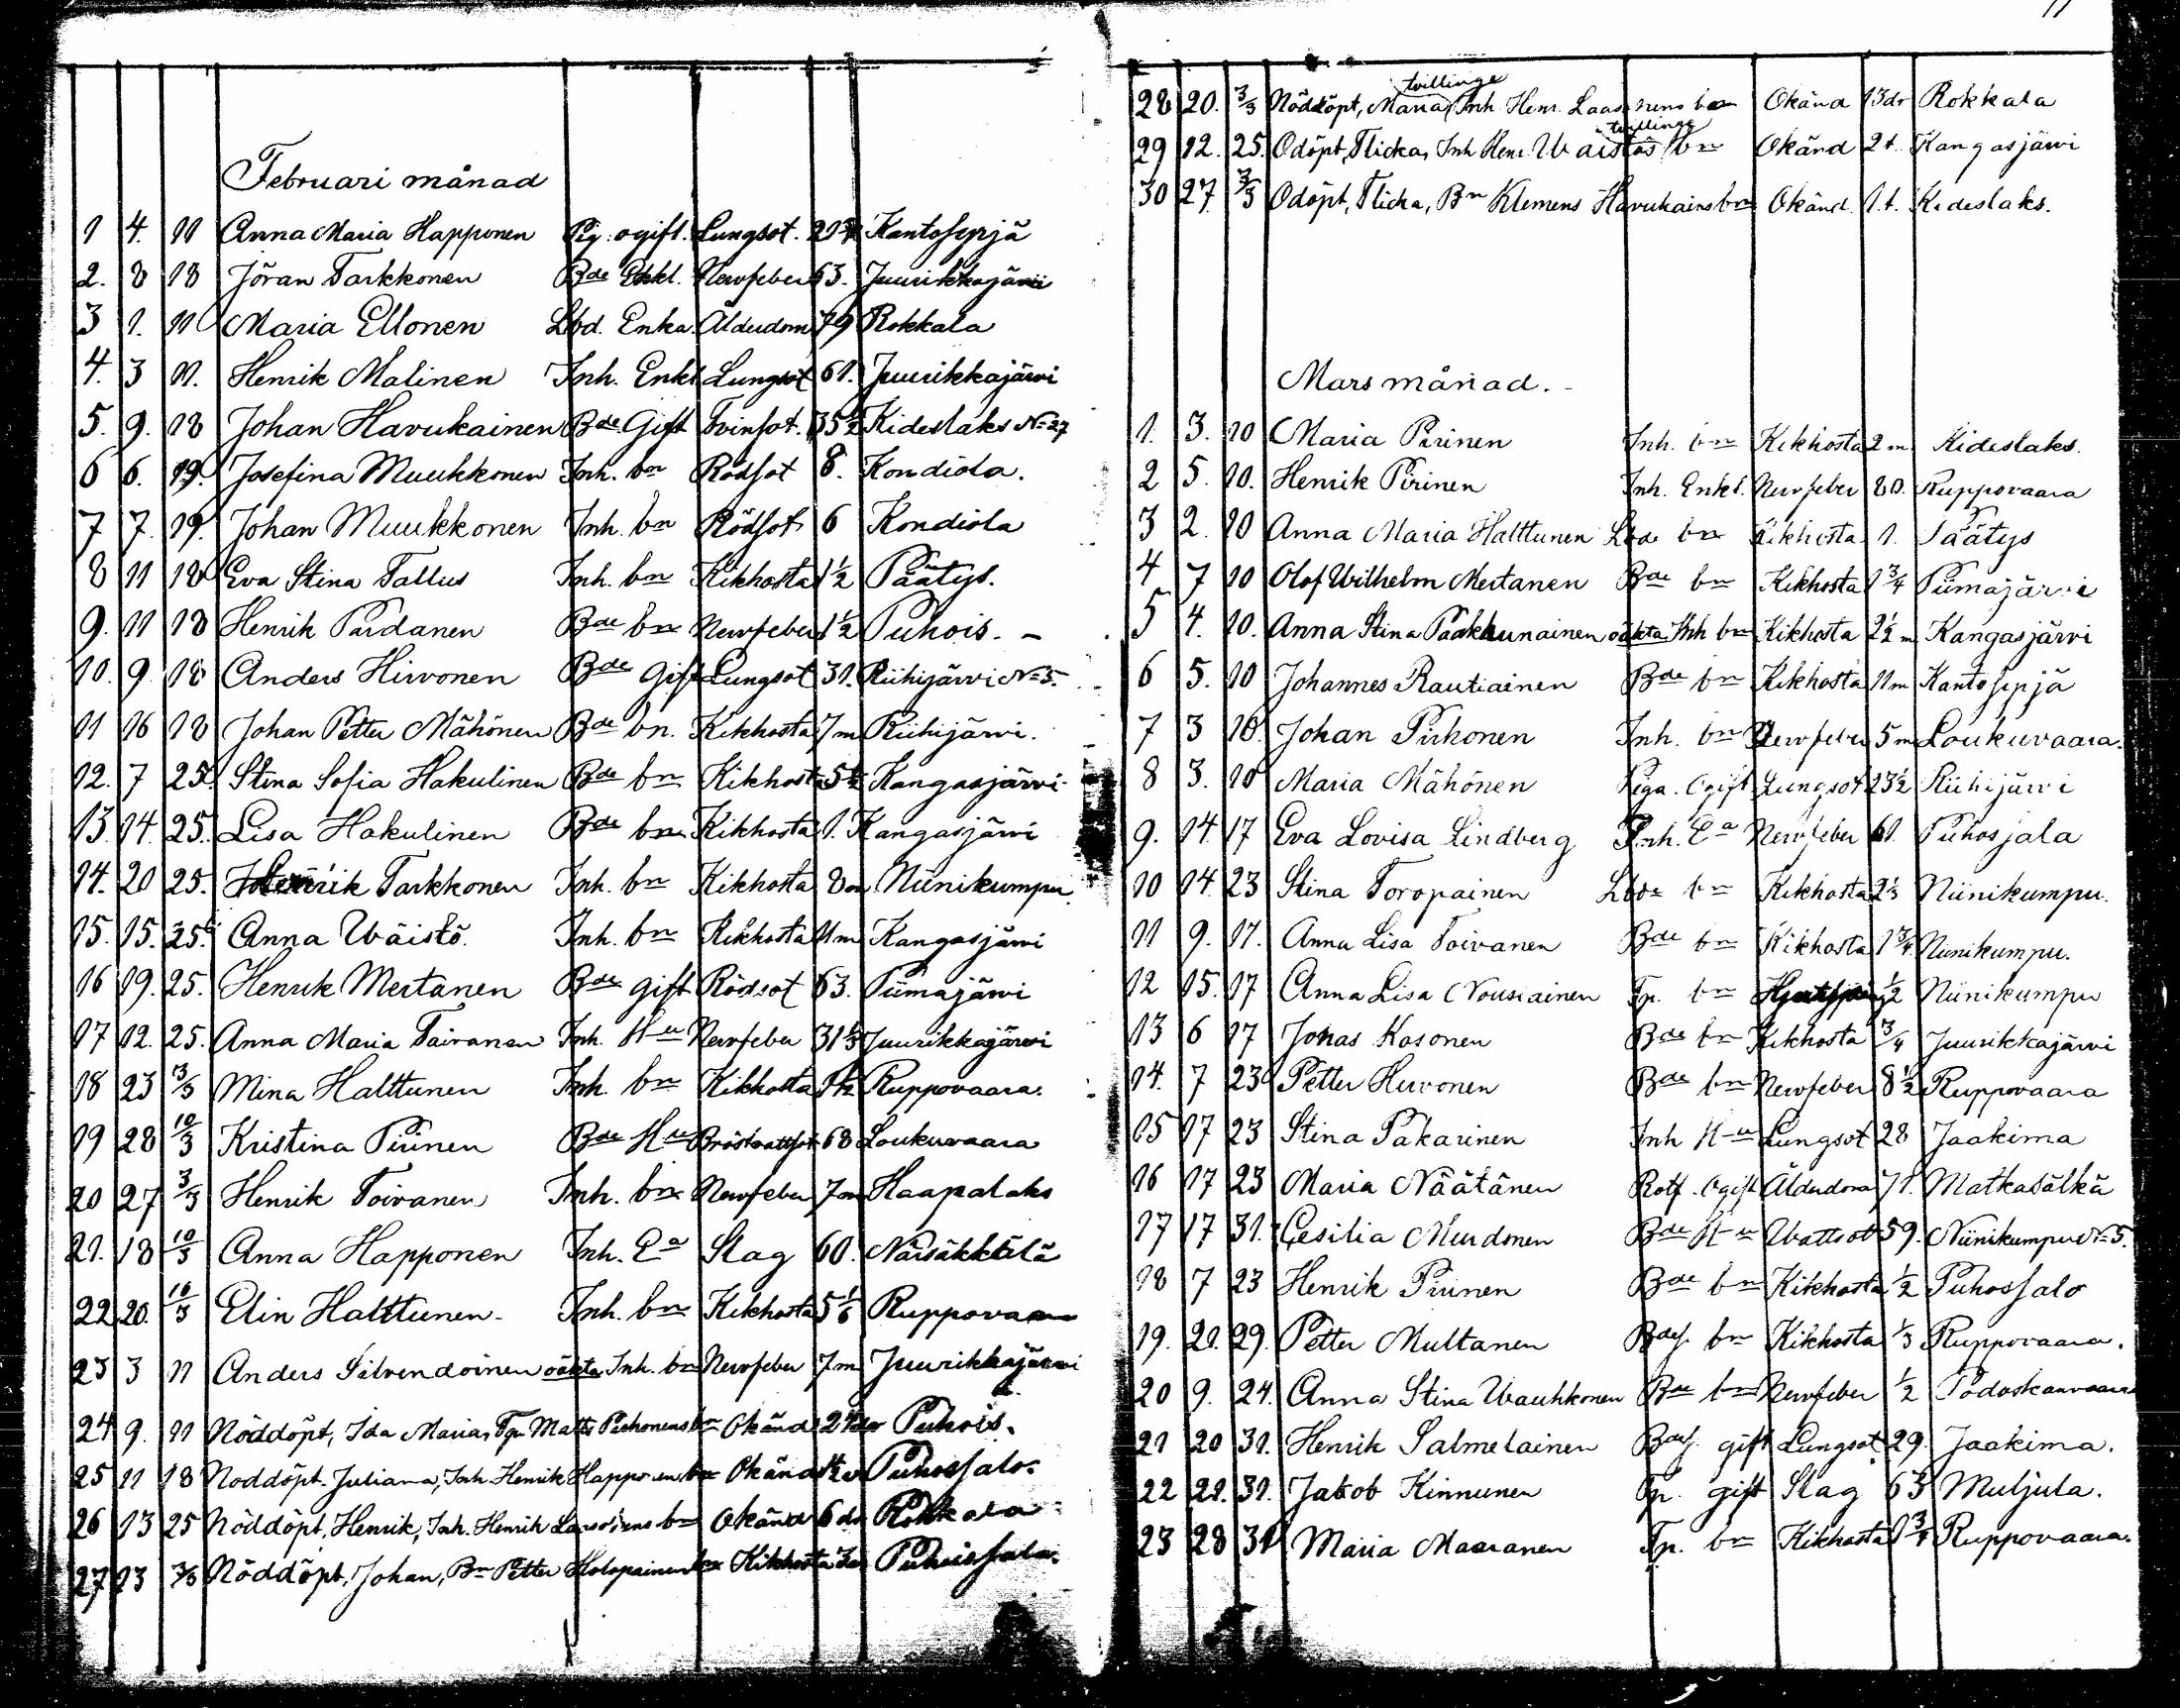 Februari månad
1 4. 11 Anna Maria Happonen Pig. ogift. Lungsot. Kantosyrjä
2. 8 18 Jöran Tarkkonen Bde Enkl. Nervfeber 63. Juurikkajärvi
3 1. 11 Maria Ellonen Lbd. Enka. Ålderdom 79 Rokkala
4. 3 11. Henrik Malinen Inh. Enkl Lungsot 61. Juurikkajärvi
5. 9. 18 Johan Havukainen Bde Gift Tvinsot. 35½ Kideslaks No 27
6 6. 19. Josefina Muukkonen Inh. bn Rödsot 8. Kondiola.
7 7. 19. Johan Muukkonen Inh. bn Rödsot 6 Kondiola
8 11 18 Eva Stina Tallus Inh. bn Kikhosta 1½ Päätys.
9. 11 18 Henrik Pardanen Bde bn Nervfeber 1½ Puhois. -
10. 9 18 Anders Hirvonen Bde Gift Lungsot 31. Riihijärvi No 5.
11 16 18 Johan Petter Mähönen Bde bn. Kikhosta 7m Riihijärvi.
12. 7 25 Stina Sofia Hakulinen Bde bn Kikhosta 5½ Kangasjärvi
13. 14. 25. Lisa Hakulinen Bde bn Kikhosta 1. Kangasjärvi
14. 20 25. Henrik Tarkkonen Inh. bn Kikhosta 8m Niinikumpu
15. 15. 25. Anna Wäistö Inh. bn Kikhosta 11m Kangasjärvi
16 19. 25. Henrik Mertanen Bde gift Rödsot 63. Piimajärvi
17 12. 25. Anna Maria Toivanen Inh. Hu Nervfeber 31⅓ Juurikkajärvi
18 23 3/3 Mina Halttunen Inh. bn Kikhosta Ruppovaara.
19 28 10/3 Kristina Pirinen Bde Hu Bröstvattsot 68 Loukuvaara
20 27 3/3 Henrik Toivanen Inh. bn Nervfeber 7m Haapalaks
21. 18 10/3 Anna Happonen Inh. Ea Slag 60. Närsäkkälä
22 20. 10/3 Elin Halttunen Inh. bn Kikhosta 5⅙ Ruppovaara
23 3 11 Anders Silvendoinen oäkta Inh. bn Nervfeber 7m Juurikkajärvi
24 9. 11 Nöddöpt, Ida Maria, Tp. Matts Pirhonens bn Okänd Puhois.
25 11 18 Nöddöpt. Juliana, Inh. Henrik Happonens bn Okänd Puhossalo.
26 13 25 Nöddöpt, Henrik, Inh. Henrik Laasonens bn Okänd 6 dr Rokkala
27 23 3/3 Nöddöpt, Johan, Bn Petter Holopainens bn Kikhosta Puhossalo.
11
tvillinge
28 20. 3/3 Nöddöpt, Maria, Inh Henr. Laasonens bn Okänd 13dr Rokkala
tvillinge
29 12. 25. Odöpt, Flicka, Inh Henr. Waistös bn Okänd 2 t. Kangasjärvi
30 27. 3/3 Odöpt, Flicka, Bn Klemens Havukains bn Okänd. 1. t. Kideslaks.
Mars månad. -
1. 3. 10 Maria Pirinen Inh. bn Kikhosta 2 m Kideslaks.
2 5. 10. Henrik Pirinen Inh. Enkl. Nervfeber 80. Ruppovaara
3 2. 10 Anna Maria Halttunen Lbde bn Kikhosta 1. Päätys
4 7 10 Olof Wilhelm Mertanen Bde bn Kikhosta 1¾ Piimajärvi
5 4. 10. Anna Stina Paakkunainen oäkta Inh bn Kikhosta 2½ m Kangasjärvi
6 5. 10 Johannes Rautiainen Bde bn Kikhosta 11m Kantosyrjä
7 3 10. Johan Pirhonen Inh. bn Nervfeber 5m Loukuvaara.
8 3. 10 Maria Mähönen Piga. Ogift Lungsot 23½ Riihijärvi
9. 14. 17 Eva Lovisa Lindberg Inh. Ea Nervfeber 61. Puhossala
10 14. 23 Stina Toropainen Lbde bn Kikhosta 2⅓ Niinikumpu.
11 9. 17. Anna Lisa Toivanen Bde bn Kikhosta 1¾ Niinikumpu.
12 15. 17 Anna Lisa Nousiainen Tp. bn ½ Niinikumpu
13 6 17 Jonas Kosonen Bde bn Kikhosta ¾ Juurikkajärvi
14. 7 23 Petter Hirvonen Bde bn Nervfeber 8½ Ruppovaara
15 17 23 Stina Pakarinen Inh Hu Lungsot 28 Jaakima
16 17 23 Maria Näätänen Rotf. Ogift Ålderdom 71. Matkasälkä
17 17 31. Cesilia Muidonen Bde Hu Wattsot 59. Niinikumpu No 5.
18 7 23 Henrik Pirinen Bde bn Kikhosta ½ Puhossalo
19. 21. 29. Petter Multanen Bdes. bn Kikhosta ⅓ Ruppovaara.
20 9. 24. Anna Stina Wauhkonen Bde bn Nervfeber ½ Podoskanvaara
21 20 31. Henrik Salmelainen Bdes. gift Lungsot 29. Jaakima.
22 21. 31. Jakob Kinnunen Tp. gift Slag 63 Muljula.
23 28 31 Maria Maaranen Tp. bn Kikhosta 1¾ Ruppovaara.